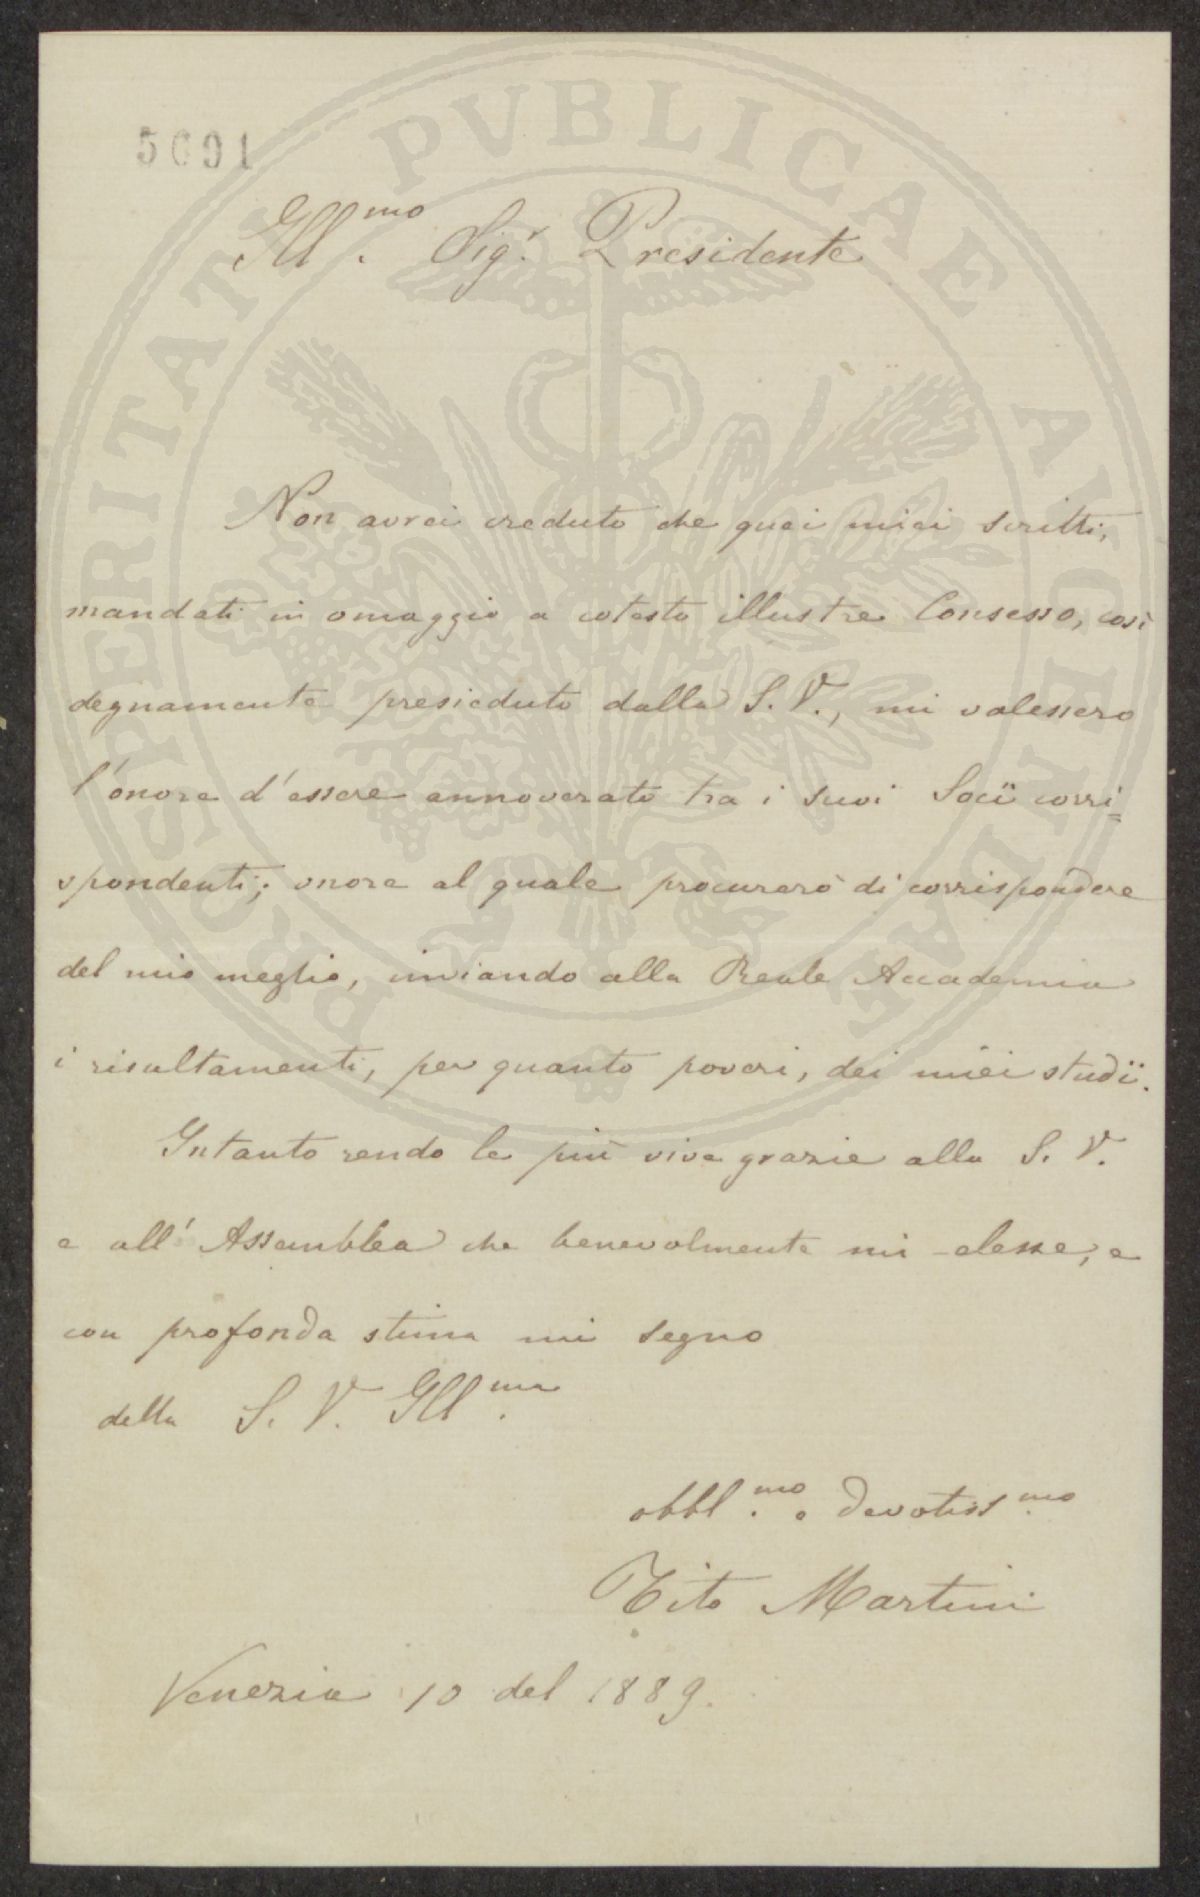 5691
Ill.mo Sig.r Presidente
Non avrei creduto che quei miei scritti,
mandati in omaggio a cotesto illustre Consesso, così
degnamente presieduto dalla S. V., mi valessero
l'onore d'essere annoverato tra i suoi Socii corri=
spondenti; onore al quale procurerò di corrispondere
del mio meglio, inviando alla Reale Accademia
i risultamenti, per quanto poveri, dei miei studii.
Intanto rendo le più vive grazie alla S. V.
e all'Assemblea che benevolmente mi elesse, e
con profonda stima mi segno
della S. V. Ill.ma
obbl.mo e devotiss.mo
Tito Martini
Venezia 10 del 1889.
PROSPERITATI PVBLICAE AVGENDAE